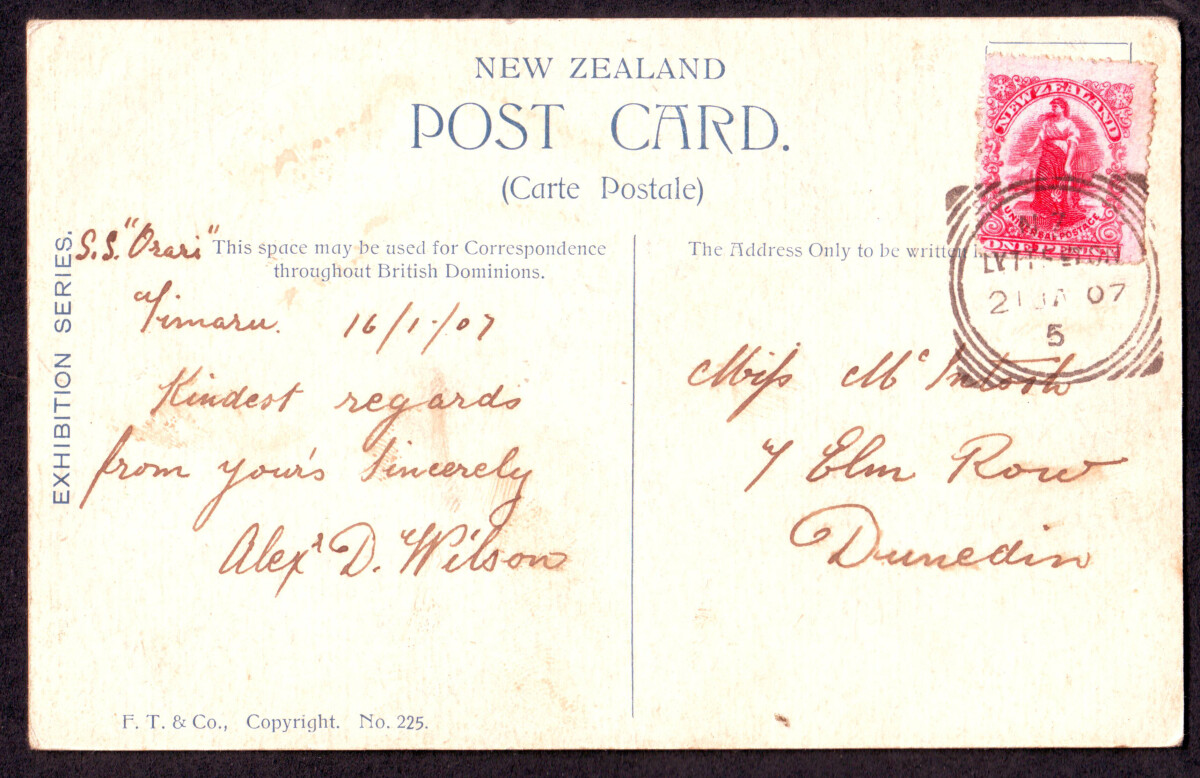 NEW ZEALAND
POST CARD.
(Carte Postale)
EXHIBITION SERIES.
S.S. "Orari"
This space may be used for Correspondence
throughout British Dominions.
Timaru. 16/1/07
Kindest regards
from your's Sincerely
Alexr D. Wilson
F. T. & Co., Copyright. No. 225.
The Address Only to be written
NEW ZEALAND
UNIVERSAL POSTAGE
ONE PENNY
LYTTELTON
21 JA 07
5
Miss McIntosh
7 Elm Row
Dunedin